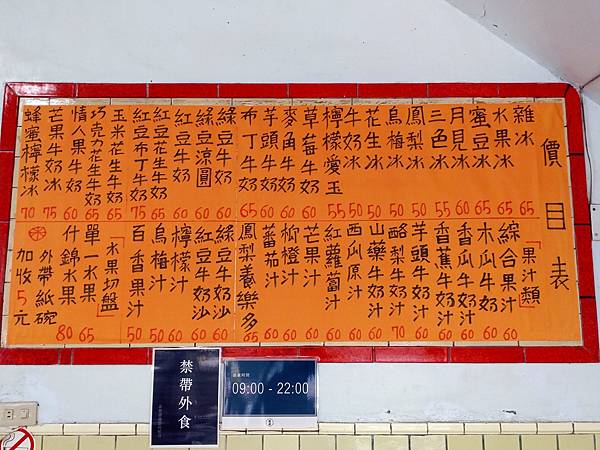 價目表
雜冰 65
水果冰 65
蜜豆冰 65
月見冰 60
三色冰 55
鳳梨冰 50
烏梅冰 50
花生冰 50
牛奶冰 50
檸檬愛玉 55
草莓牛奶 60
麥角牛奶 60
芋頭牛奶 60
布丁牛奶 65
綠豆牛奶 60
綠豆涼圓 60
紅豆牛奶 60
紅豆花生牛奶 65
紅豆布丁牛奶 75
玉米花生牛奶 65
巧克力花生牛奶 65
情人果牛奶 60
芒果牛奶冰 75
蜂蜜檸檬冰 70
「果汁類」
綜合果汁 60
木瓜牛奶 60
香瓜牛奶汁 60
香蕉牛奶汁 60
芋頭牛奶汁 60
酪梨牛奶汁 70
山藥牛奶汁 60
西瓜原汁 60
紅蘿蔔汁 60
芒果汁 60
柳橙汁 60
蕃茄汁 60
鳳梨養樂多 65
綠豆牛奶沙 60
紅豆牛奶沙 60
檸檬汁 60
烏梅汁 50
百香果汁 50
「水果切盤」
單一水果 65
什錦水果 80
外帶紙碗
加收5元
禁帶外食
營業時間
09:00 - 22:00